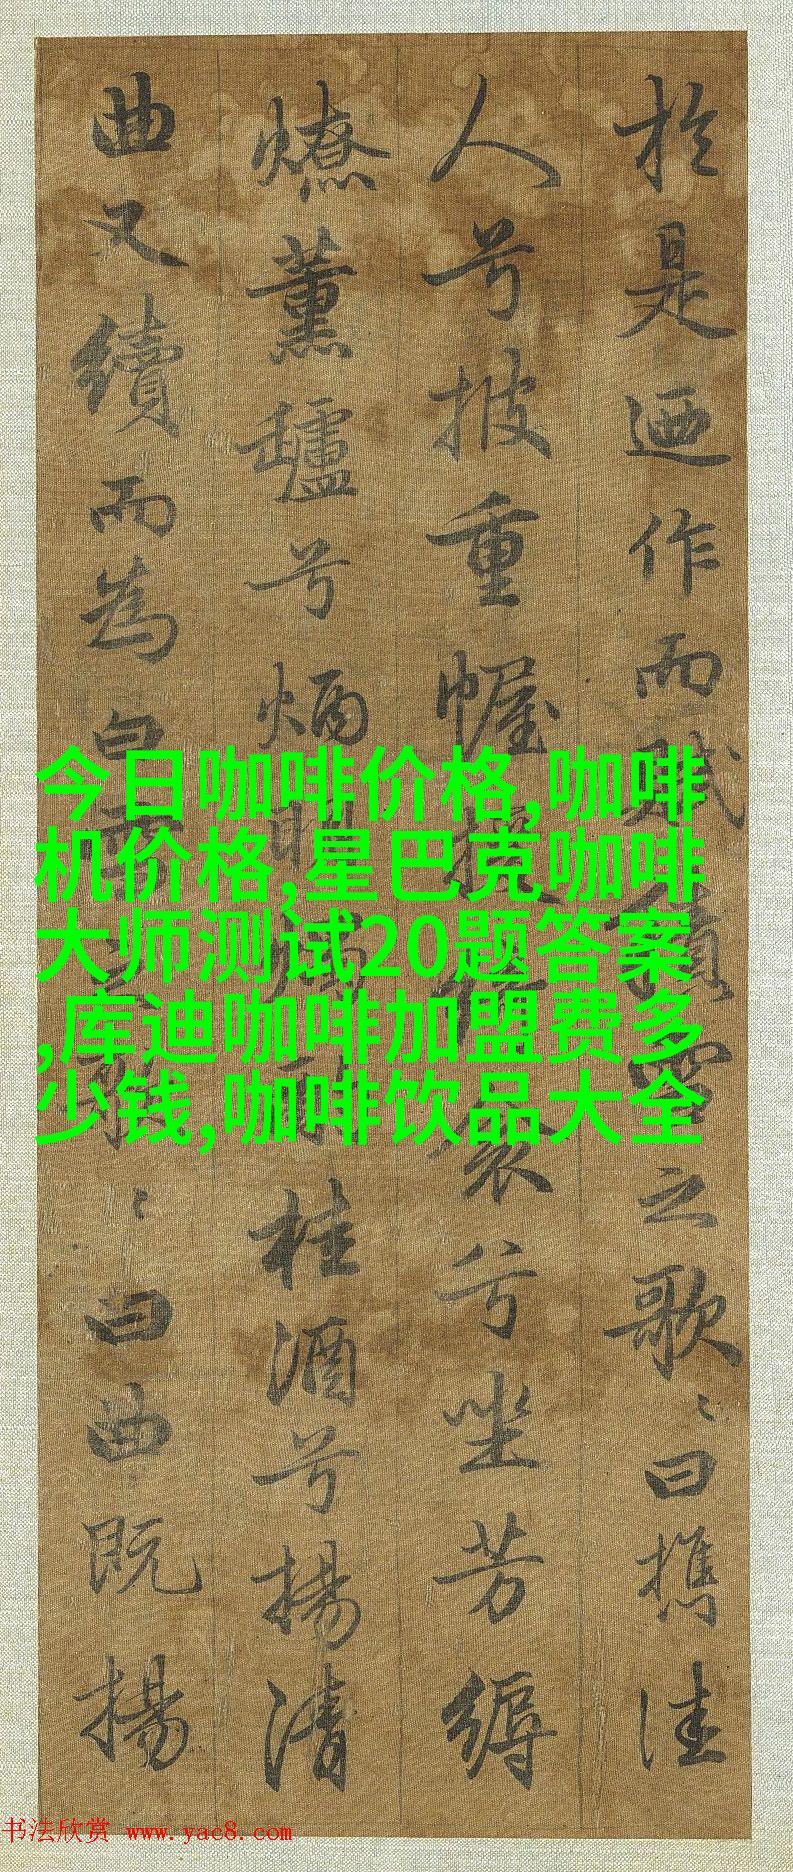 於是迺作而賦積雪之歌〻曰攜佳
人兮披重幄援綺衾兮坐芳縟
燎薰罏兮焫明燭酌桂酒兮揚清
曲又續而為白雪之歌〻曰曲既揚
今日咖啡价格,咖啡
机价格,星巴克咖啡
大师测试20题答案
,库迪咖啡加盟费多
少钱,咖啡饮品大全
书法欣赏 www.yac8.com